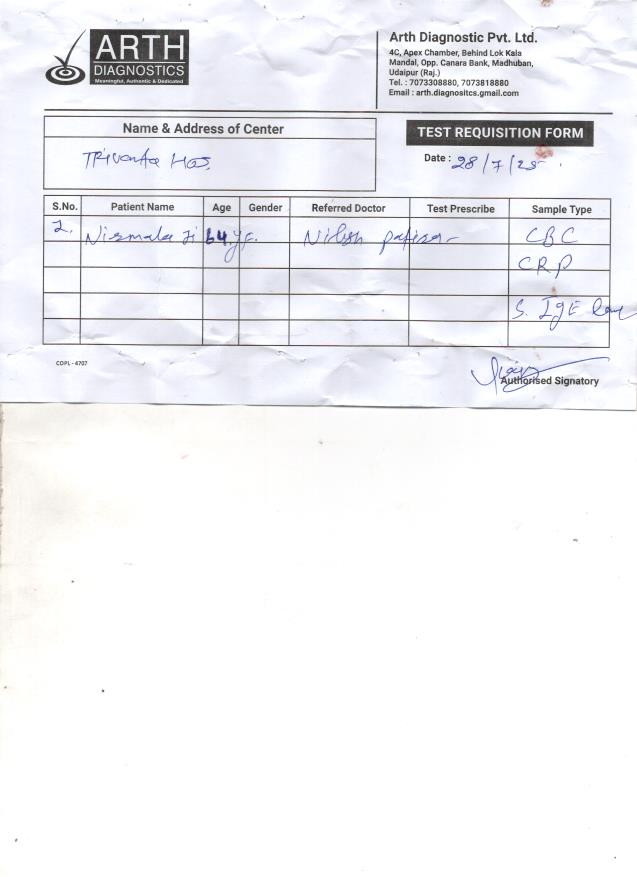 ARTH
DIAGNOSTICS
Meaningful, Authentic & Dedicated
Arth Diagnostic Pvt. Ltd.
4C, Apex Chamber, Behind Lok Kala
Mandal, Opp. Canara Bank, Madhuban,
Udaipur (Raj.)
Tel. : 7073308880, 7073818880
Email : arth.diagnositcs.gmail.com
Name & Address of Center
TEST REQUISITION FORM
Date : 28/7/25
S.No. Patient Name Age Gender Referred Doctor Test Prescribe Sample Type
Nirmala Ji 64 y F. CBC
CRP
S. IgE
COPL - 4707
Authorised Signatory